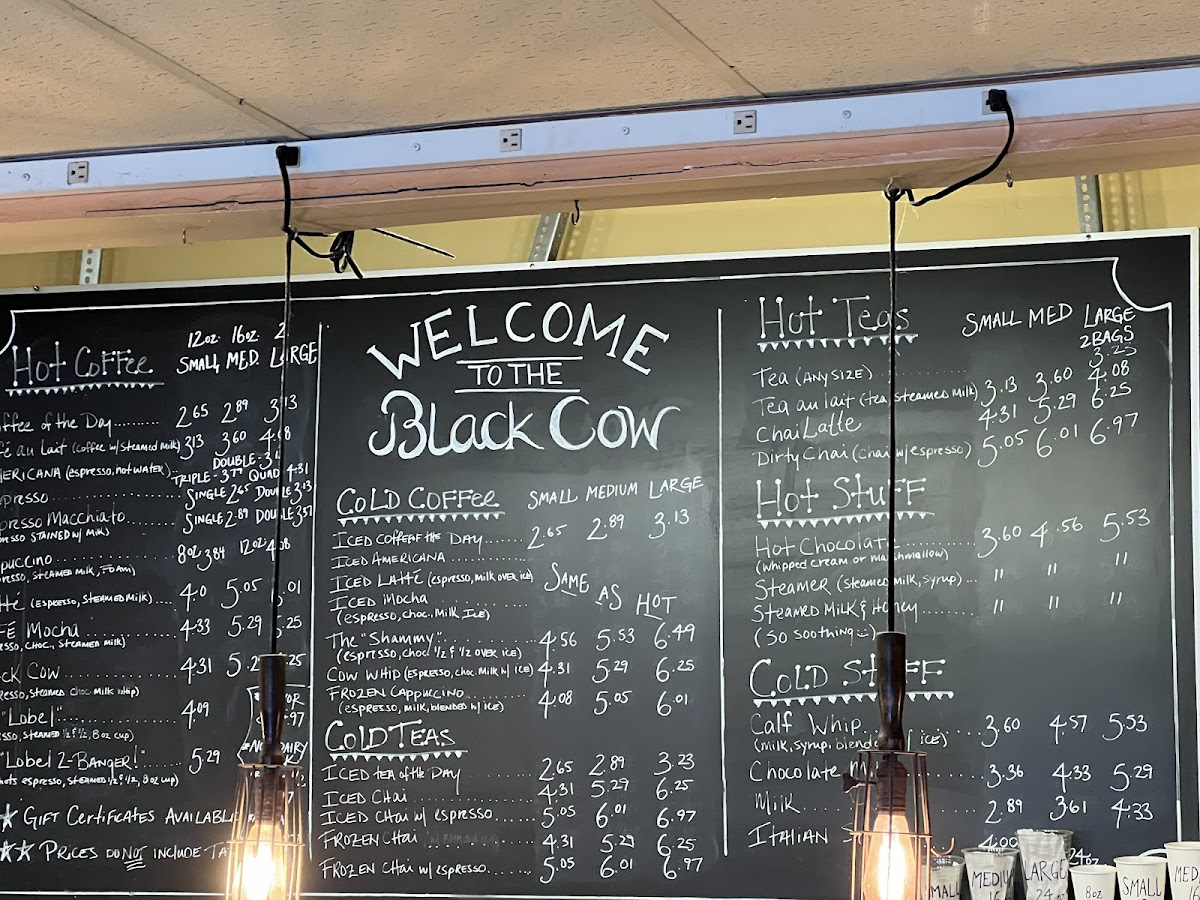 12oz. 16oz. 2
Hot Coffee SMALL MED. L RGE
ffee of the Day 2.65 2.89 3.13
fé au Lait (coffee w/steamed milk) 3.13 3.60 4.08
MERICANA (espresso, hot water) DOUBLE-3.
TRIPLE-3.77 QUAD 4.31
presso SINGLE 2.65 Double 3.13
presso Macchiato SINGLE 2.89 DOUBLE 3.37
esso STAINED w/ Milk)
ppuccino 8oz 3.84 12oz 4.08
resso, STEAMED Milk, FOAM)
tte (espresso, STEAMED MILK) 4.0 5.05 .01
FÉ Mocha 4.33 5.29 .25
esso, choc., STEAMED milk)
ck Cow 4.31 5.2 .25
resso, steamed choc. milk whip)
"Lobel" 4.09
sso, STEAMED 1/2 & 1/2, 8oz cup)
"Lobel 2-Banger!" 5.29
hots espresso, STEAMED 1/2 & 1/2, 8oz cup)
★ GIFT Certificates AVAILABL
★★ PRICES DO NOT INCLUDE TA
WELCOME
TO THE
Black Cow
Cold Coffee SMALL MEDIUM LARGE
ICED Coffee of the DAY 2.65 2.89 3.13
ICED AMERICANA
ICED Latté (espresso, milk over ice) SAME
ICED Mocha AS HOT
(espresso, choc., Milk Ice)
The "Shammy" 4.56 5.53 6.49
(espresso, choc. 1/2 & 1/2 over ice)
Cow Whip (Espresso, choc. Milk w/ ice) 4.31 5.29 6.25
FROZEN CAPPUCCINO 4.08 5.05 6.01
(espresso, milk, blended w/ ice)
Cold TEAS
ICED tea of the DAY 2.65 2.89 3.23
ICED Chai 4.31 5.29 6.25
ICED CHai w/ espresso 5.05 6.01 6.97
FROZEN CHai 4.31 5.29 6.25
FROZEN CHai w/ espresso 5.05 6.01 6.97
Hot Teas SMALL MED LARGE
2 BAGS
Tea (ANY SIZE) 3.25
Tea au lait (tea steamed milk) 3.13 3.60 4.08
Chai Latte 4.31 5.29 6.25
Dirty Chai (chai w/ espresso) 5.05 6.01 6.97
Hot Stuff
Hot Chocolat 3.60 4.56 5.53
(whipped cream or marshmallow)
Steamer (steamed milk, syrup) " " "
Steamed Milk & Honey " " "
(So soothing☺)
Cold Stuff
Calf Whip 3.60 4.57 5.53
(milk, syrup, blende ice)
Chocolate M 3.36 4.33 5.29
Milk 2.89 3.61 4.33
ITALIAN S 4.00
MALL MEDIU LARGE 24oz 8oz SMALL MED